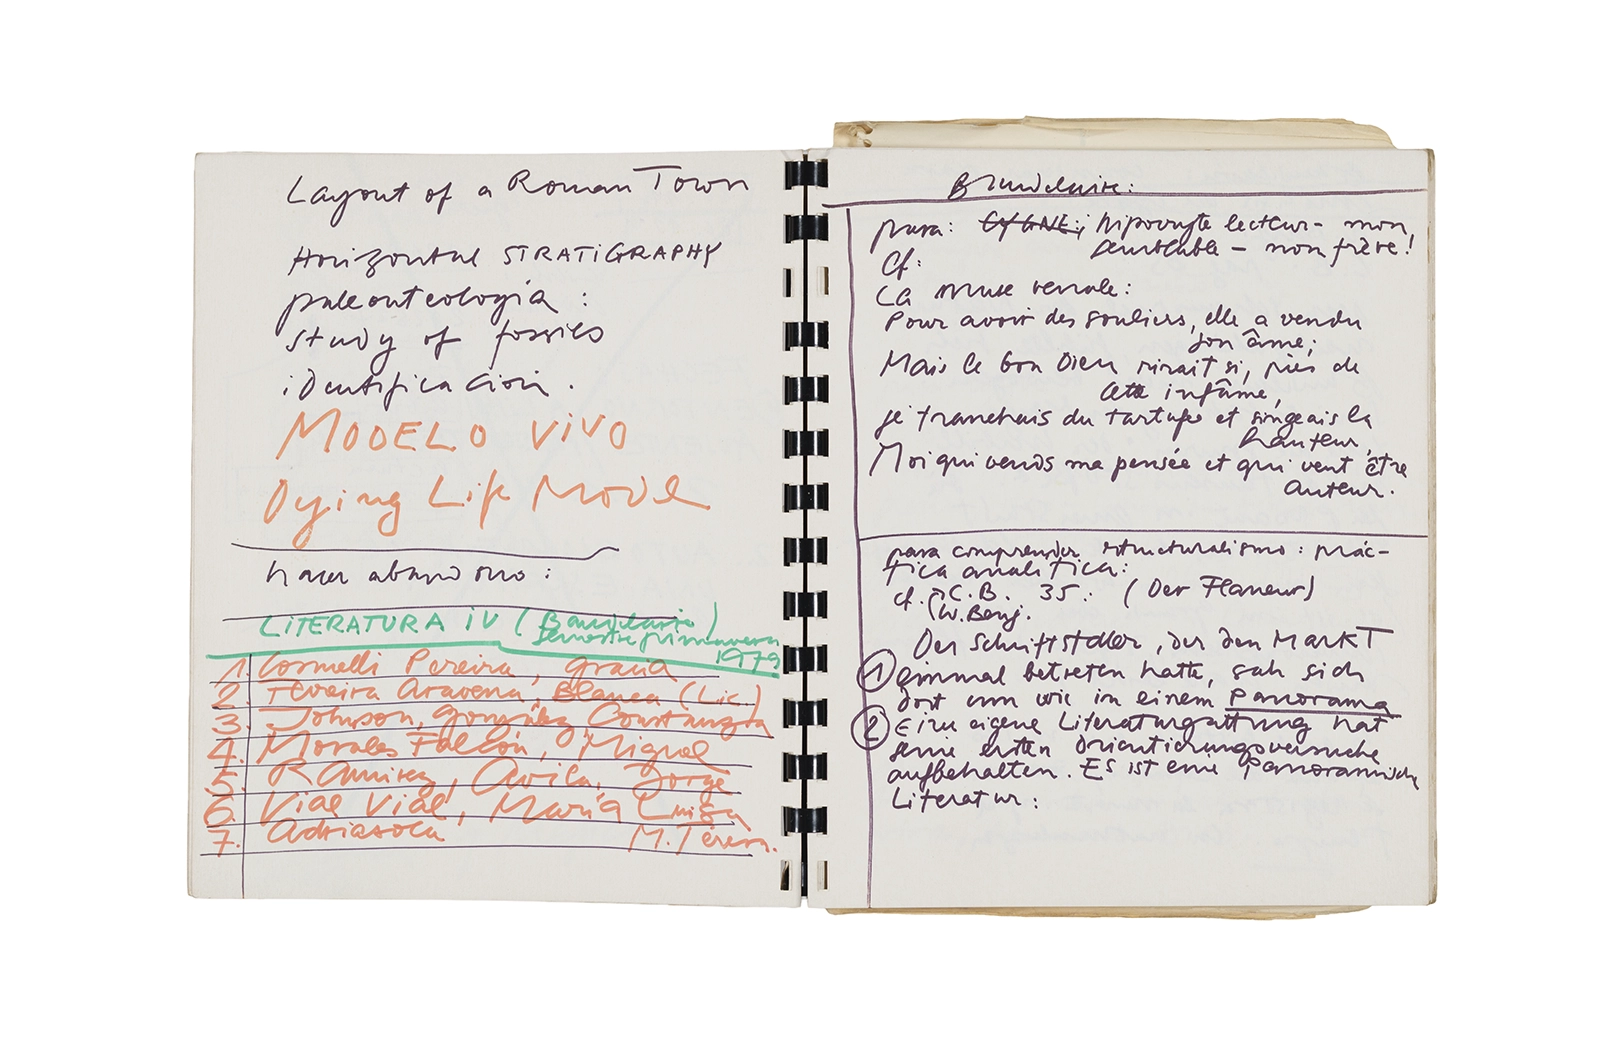 Layout of a Roman Town
Horizontal STRATIGRAPHY
paleonteologia :
study of fossils
identificación.
MODELO VIVO
Dying Life Model
hacer abandono :
LITERATURA IV (Baudelaire)
semestre primavera
1979
1. Cornelli Pereira, Gracia
2. Teveira Aravena, Blanca (Lic.)
3. Johnson, González Constanza
4. Morales Falcón, Miguel
5. Ramirez, Avila, Jorge
6. Vial Vial, María Luisa
7. Adriasola M. Teresa.
Baudelaire:
para: CYGNE; hipocryte lecteur - mon
semblable - mon frère!
Cf:
La muse venale:
Pour avoir des souliers, elle a vendu
son âme;
Mais le bon Dieu rirait si, près de
cette infâme,
je tranchais du tartufe et singeais la
hauteur,
Moi qui vends ma pensée et qui veut être
auteur.
para comprender estructuralismo: prác-
tica analitica:
cf. C.B. 35: (Der Flaneur)
(W. Benj.
Der Schriftsteller, der den MARKT
1 einmal betreten hatte, sah sich
dort um wie in einem Panorama
2 Eine eigene Literaturgattung hat
seine ersten Orientierungsversuche
aufbehalten. Es ist eine panoramische
Literatur: